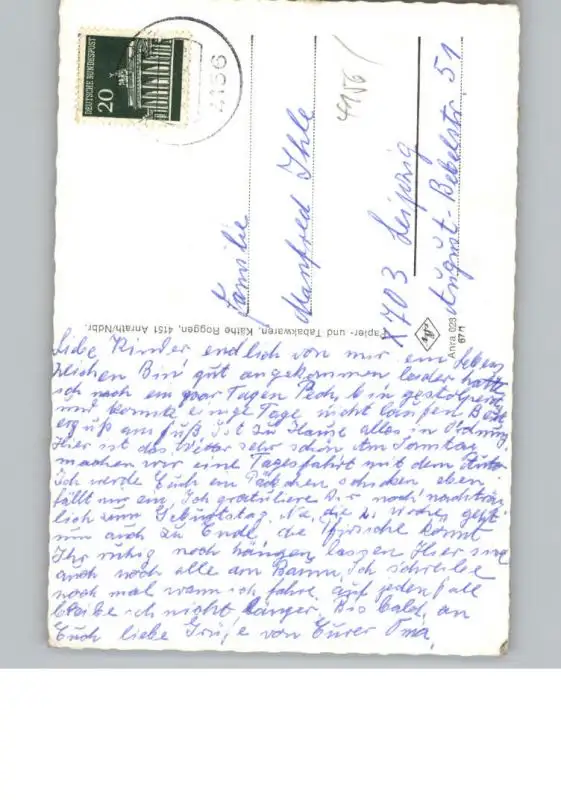 DEUTSCHE BUNDESPOST
20
4156
4156/
Familie
Manfred Ihle
X 703 Leipzig
August-Bebelstr. 51
Papier- und Tabakwaren, Käthe Roggen, 4151 Anrath/Ndbr.
Anra 023
67 M
Liebe Kinder, endlich von mir ein Lebens
zeichen Bin gut angekommen leider hatte
ich nach ein paar Tagen Pech, bin gestolpert
und konnte einige Tage nicht laufen
erguß am Fuß Ist zu Hause alles in Ordnung
Hier ist das Wetter sehr schön Am Samstag
machen wir eine Tagesfahrt mit dem Auto
Ich werde Euch ein Päckchen schicken eben
fällt mir ein, Ich gratuliere Dir noch nachträg
lich zum Geburtstag. Na, die 2. Woche geht
nun auch zu Ende, die Pfirsiche könnt
Ihr ruhig noch hängen lassen Hier sind
auch noch alle am Baum, Ich schreibe
noch mal wann ich fahre, auf jeden Fall
bleibe ich nicht länger, Bis bald, an
Euch liebe Grüße von Eurer Oma,